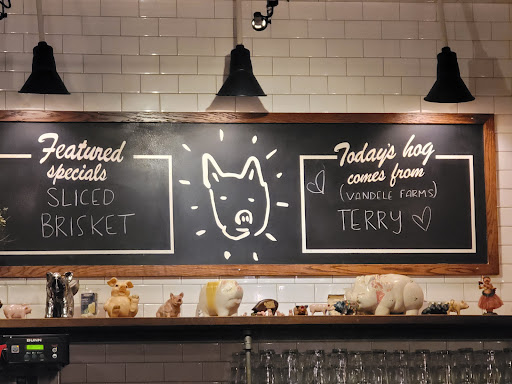 Featured
specials
SLICED
BRISKET
Today's hog
comes from
(VANDELE FARMS)
TERRY
BUNN